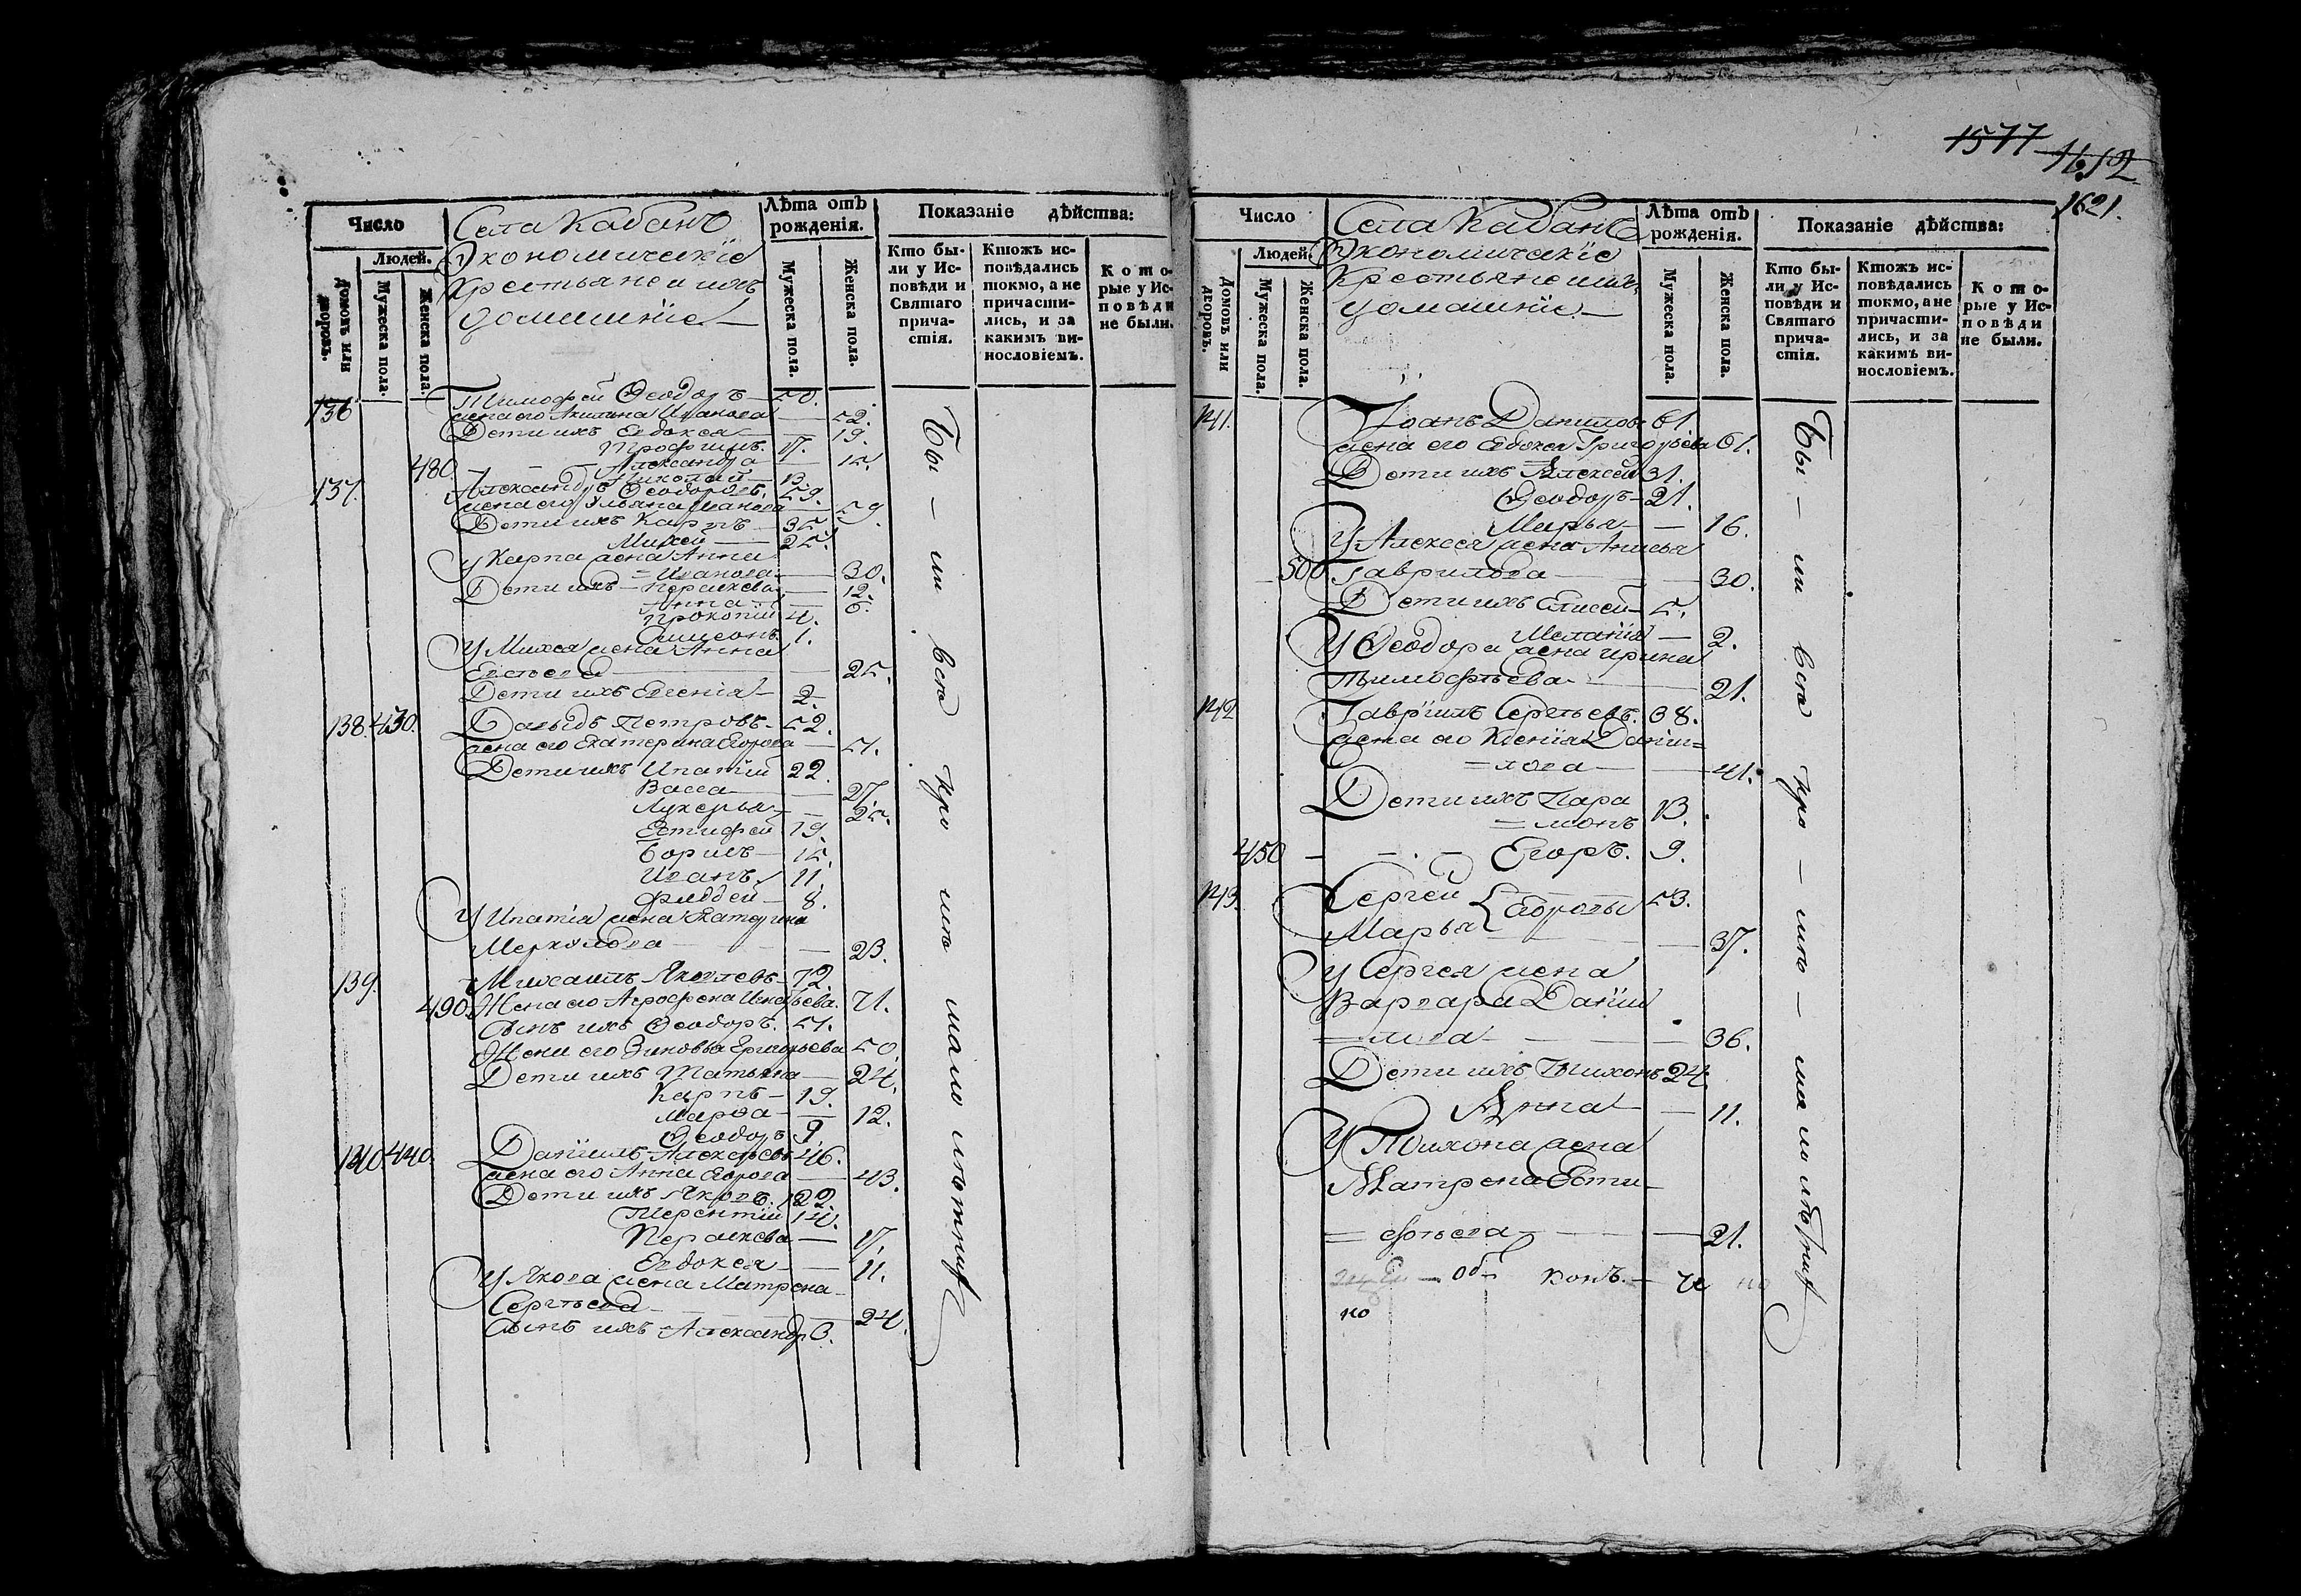 1577
1652
1621.
Число
Людей.
Домовъ или дворовъ.
Мужеска пола.
Женска пола.
Села Кабанъ
Экономическіе
Крестьяне и ихъ
домашніе
Лѣта отъ рожденія.
Мужеска пола.
Женска пола.
Показаніе дѣйства:
Кто бы-
ли у Ис-
повѣди и
Святаго
прича-
стія.
Ктожъ ис-
повѣдались
токмо, а не
причасти-
лись, и за
какимъ ви-
нословіемъ.
Кото-
рые у Ис-
повѣди
не были.
136 Тимофей Ѳеодоръ 50.
жена его Акилина Иванова 52.
Дети ихъ Евдокея 19.
Трофимъ. 17.
480 Александра 15.
Николай 13.
137. Александръ Ѳеодоровъ. 59.
жена его Ульяна Иванова 59.
Дети ихъ Карпъ 35.
Михей 25.
У Карпа жена Анна
= Иванова 30.
Дети ихъ Пераскева 12.
Анна 6.
Прокопій 4.
Симеонъ 1.
У Михея жена Анна
25.
Дети ихъ Евгенія 2.
138. 430. Давыдъ Петровъ 52.
жена его Екатерина Егорова 51.
Дети ихъ Ипатій 22.
Васса 27.
Лукерья 25.
Евтифей 19.
Борисъ 15.
Иванъ 11.
Фаддей 8.
У Ипатія жена Екатерина
Меркулова 23.
139. Михаилъ Яковлевъ 72.
490. Жена его Агрофена Игнатьева. 71.
Сынъ ихъ Ѳеодоръ. 51.
Жена его Зиновья Григорьева 50.
Дети ихъ Татьяна 24.
Карпъ 19.
Марѳа 12.
Ѳеодоръ 9.
140 440. Даніилъ Алексѣевъ 46.
жена его Анна Егорова 43.
Дети ихъ Яковъ. 22.
Терентій 14.
Пераскева 17.
Евдокея 11.
У Якова жена Матрена
Сергѣева 24.
Сынъ ихъ Александръ 3.
Бы - ли всѣ кро мѣ мало лѣтних
Число
Людей.
Домовъ или дворовъ.
Мужеска пола.
Женска пола.
Села Кабанъ
Экономическіе
Крестьяне и ихъ
домашніе
Лѣта отъ рожденія.
Мужеска пола.
Женска пола.
Показаніе дѣйства:
Кто бы-
ли у Ис-
повѣди и
Святаго
прича-
стія.
Ктожъ ис-
повѣдались
токмо, а не
причасти-
лись, и за
какимъ ви-
нословіемъ.
Кото-
рые у Ис-
повѣди
не были.
141. Іоанъ Даниловъ 61.
жена его Евдокея Григорьева 61.
Дети ихъ Алексей 31.
Ѳеодоръ 21.
Марья 16.
У Алексея жена Анисья
500 Гаврилова 30.
Дети ихъ Елисей 5.
Меланія 2.
У Ѳеодора жена Ирина
Тимофѣева 21.
142 Гавріилъ Сергѣевъ. 38.
жена его Ксенія Даніи=
=лова 41.
Дети ихъ Пара
=монъ 13.
450 Егоръ. 9.
143. Сергей Егоровы 53.
Марья 37.
У Сергея жена
Варвара Даніи
=лова 36.
Дети ихъ Тихонъ 24
Анна 11.
У Тихона жена
Матрена Евти-
=фѣева 21.
Бы - ли всѣ кро - мѣ - ма ло лѣтних